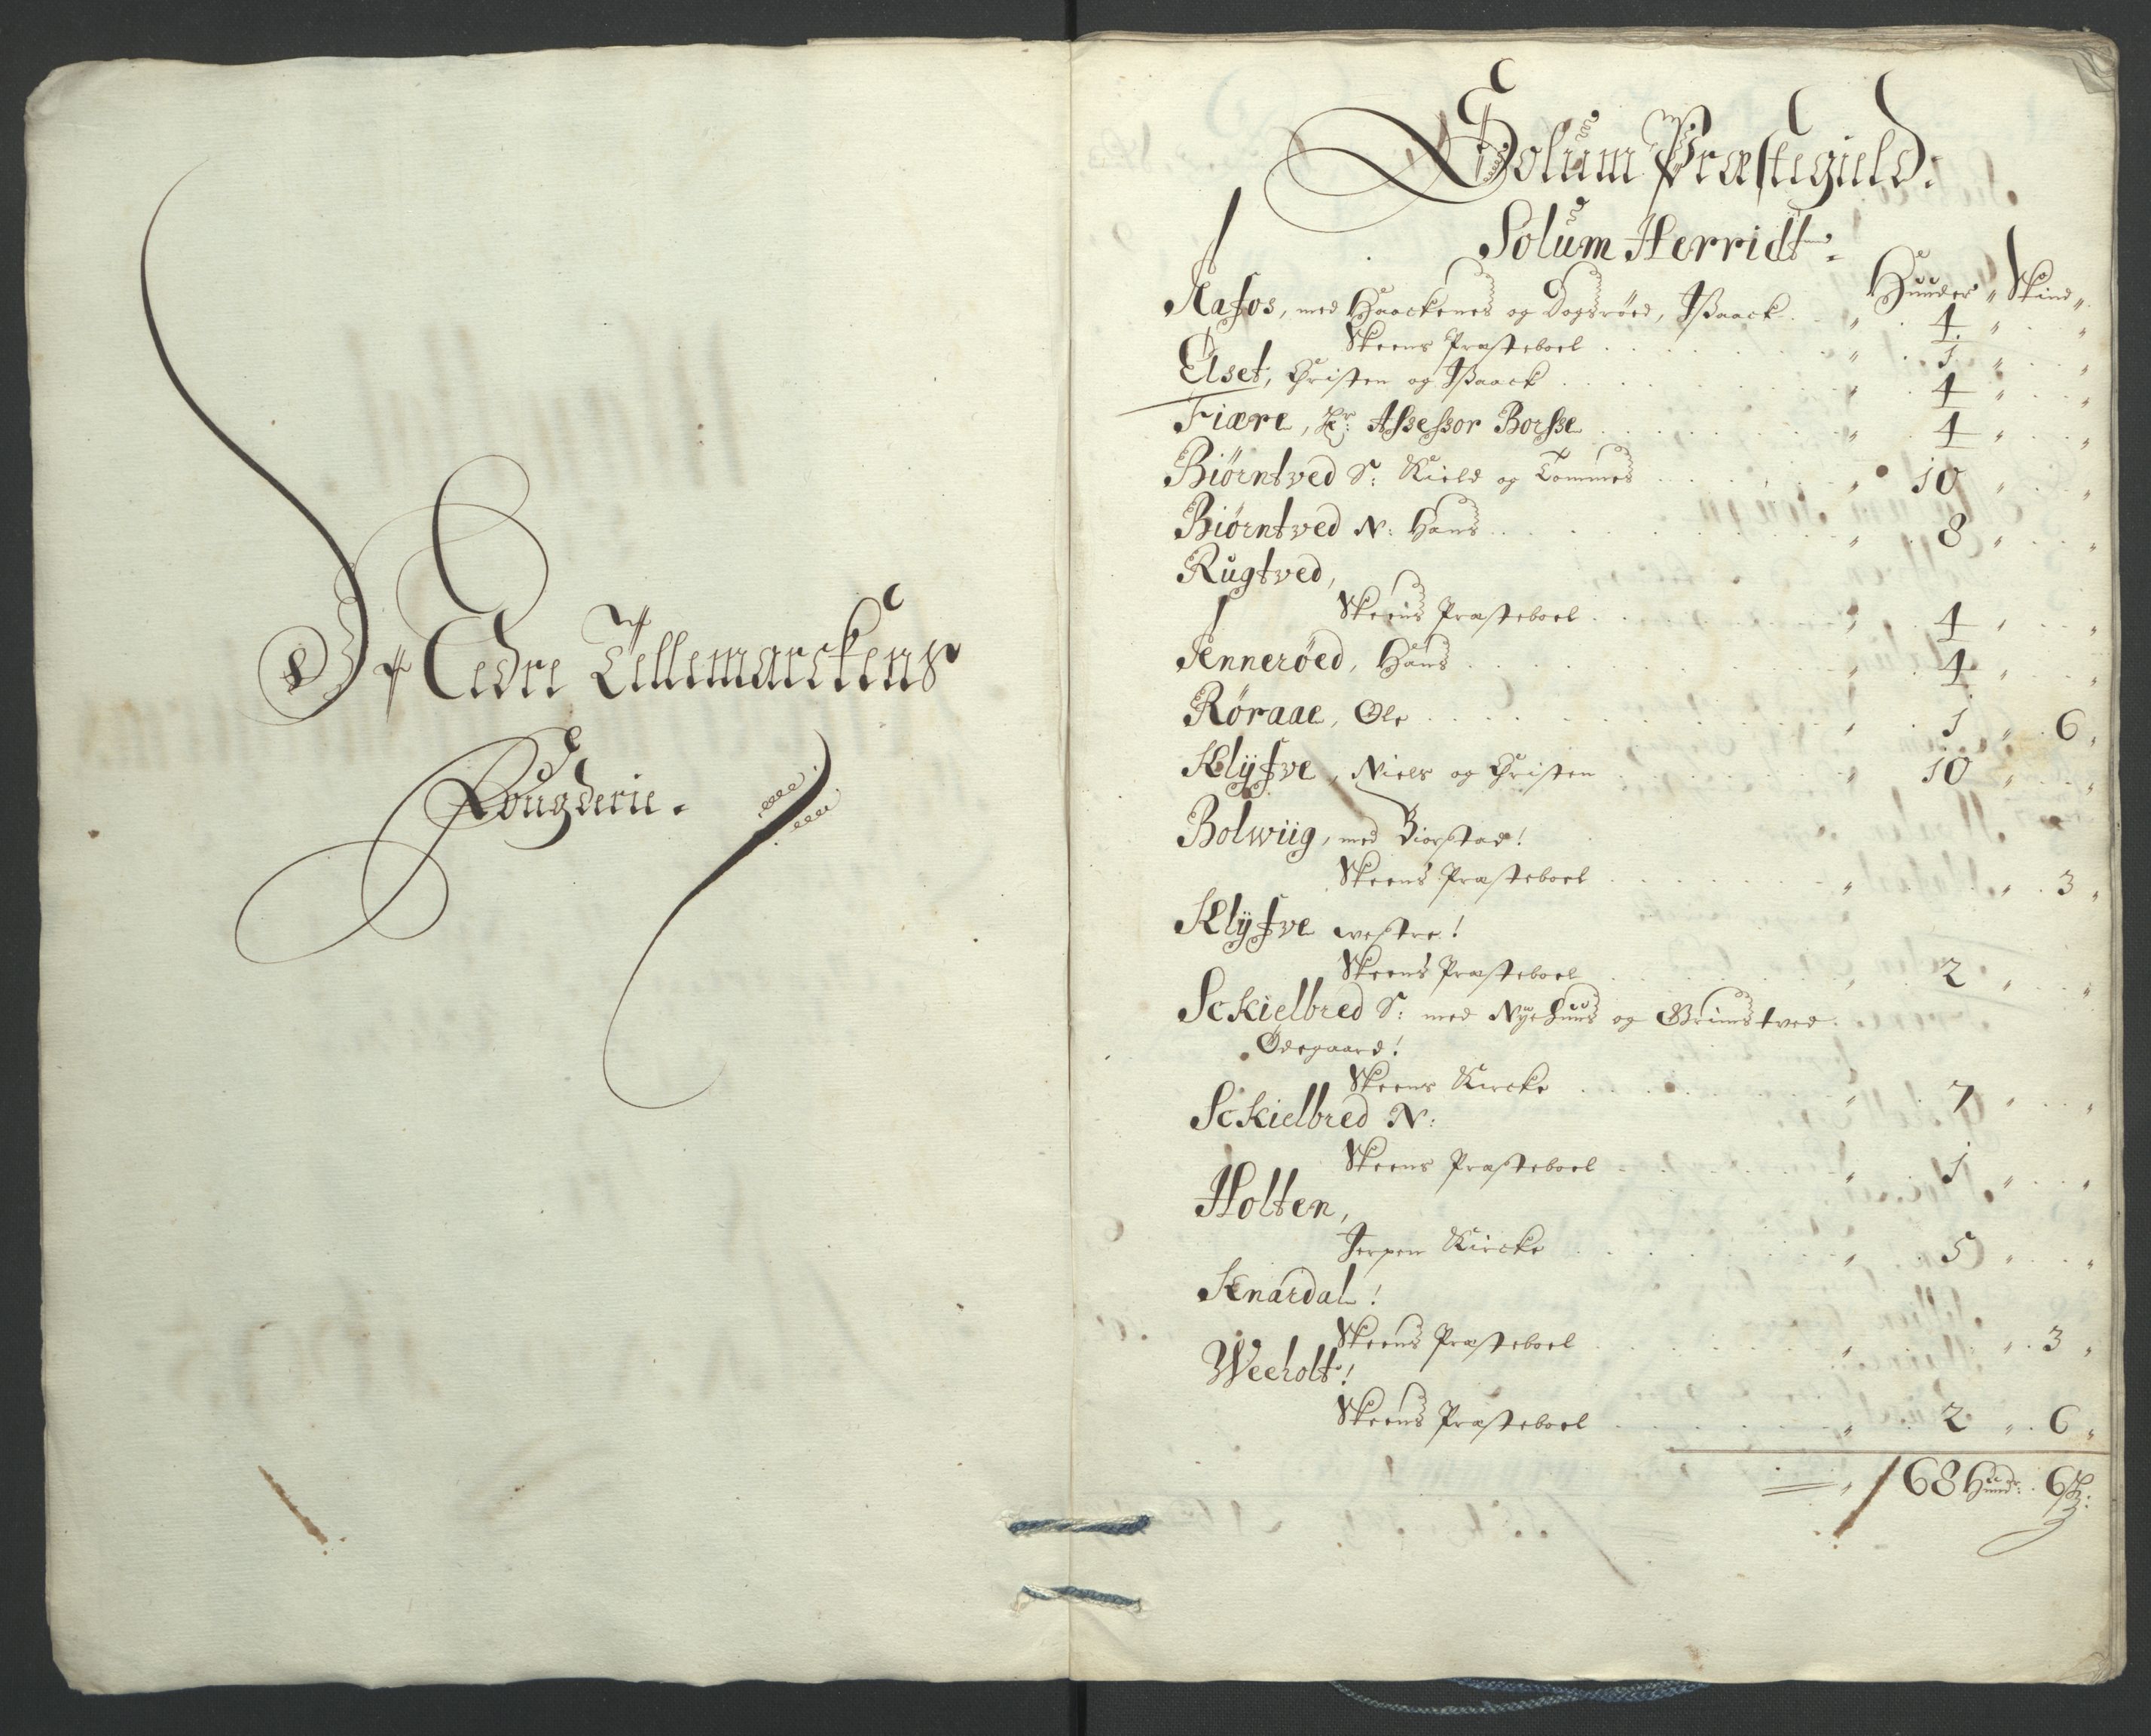 Nedre Tellemarckens
Fougderie.
Solum Præstegield:
Solum Herridt:
Huuder " Skind "
Aafos, med Haackenes og Dogsröed, Ißaack . . " . 4 " . "
Skeens Præsteboel . . . " . 1 " . . "
Elset, Christen og Ißaack . . . " . 4 " . . "
Fiære, Hr: Aßeßor Borße . . . " . 4 " . . "
Biörntved S: Kield og Tommes . . . " 10 " . . "
Biörntved N: Hans . . . " . 8 " . . "
Rugtved,
Skeens Præsteboel . . . " . 4 " . . "
Enneröed, Hans . . . " . 4 " . . "
Röraae, Ole . . . " . 1 " . 6 "
Klÿfve, Niels og Christen . . . " 10 " . . "
Bolwiig, med Biorstad!
Skeens Præsteboel . . . " . . " . 3 "
Klÿfve westre!
Skeens Præsteboel . . . " . 2 " . . "
Sckielbred S: med Nÿehuus og Grimstved
Ödegaard!
Skeens Kircke . . . " . 7 " . . "
Sckielbred N:
Skeens Præsteboel . . . " . 1 " . . "
Holten,
Jerpen Kircke . . . " . 5 " . . "
Knardal!
Skeens Præsteboel . . . " . . " . 3 "
Weeholt!
Skeens Præsteboel . . . " . 2 " . 6 "
68 Huudr: . 6 Sk: